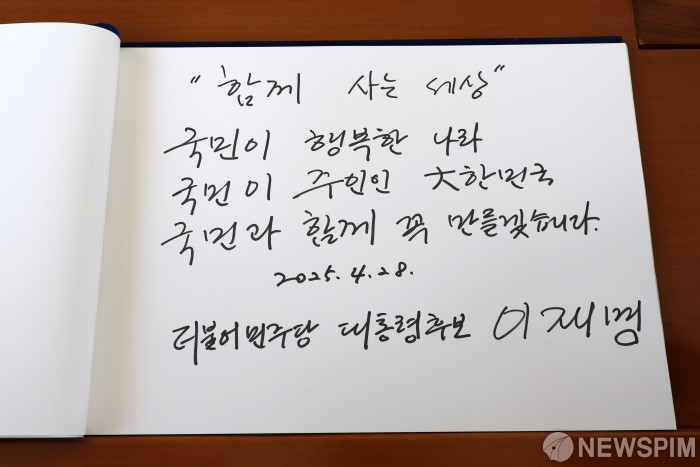 "함께 사는 세상"
국민이 행복한 나라
국민이 주인인 大한민국
국민과 함께 꼭 만들겠습니다.
2025. 4. 28.
더불어민주당 대통령후보 이재명
NEWSPIM